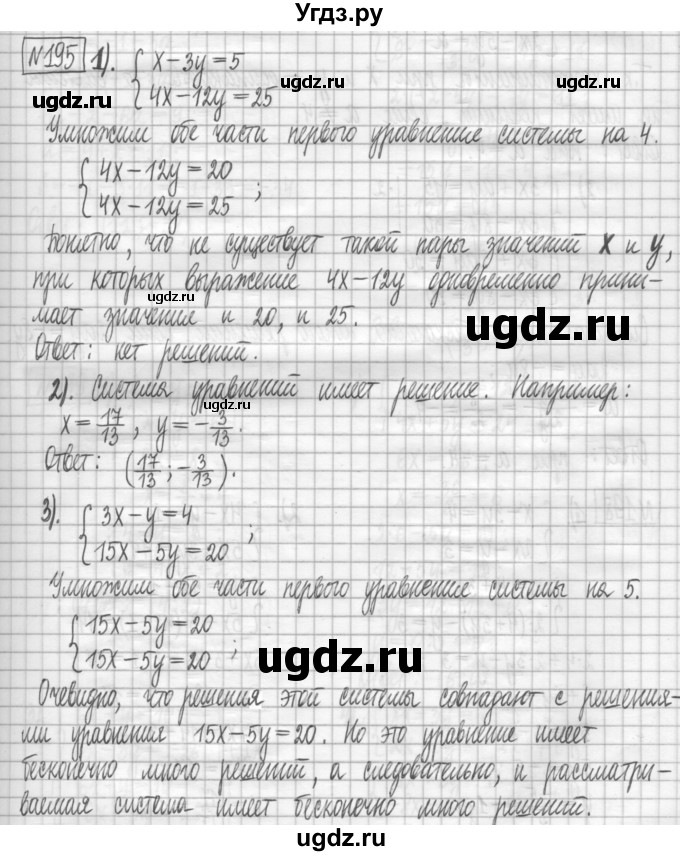 Угдз.ру
№195 1). { x − 3y = 5
4x − 12y = 25 ;
ugdz.ru ugdz.ru ugdz.ru
Умножим обе части первого уравнение системы на 4.
{ 4x − 12y = 20
4x − 12y = 25 ;
Конечно, что не существует такой пары значений x и y,
при которых выражение 4x − 12y одновременно прини-
ugdz.ru
мает значение и 20, и 25.
ugdz.ru
Ответ: нет решений.
2). Система уравнений имеет решение. Например:
ugdz.ru
x = 17/13, y = − 3/13.
Ответ: (17/13; − 3/13).
3). { 3x − y = 4
15x − 5y = 20 ;
Умножим обе части первого уравнение системы на 5.
{ 15x − 5y = 20
15x − 5y = 20 ;
ugdz.ru
Очевидно, что решения этой системы совпадают с решения-
ми уравнения 15x − 5y = 20. Но это уравнение имеет
бесконечно много решений, а следовательно, и рассматри-
ваемая система имеет бесконечно много решений.
ugdz.ru